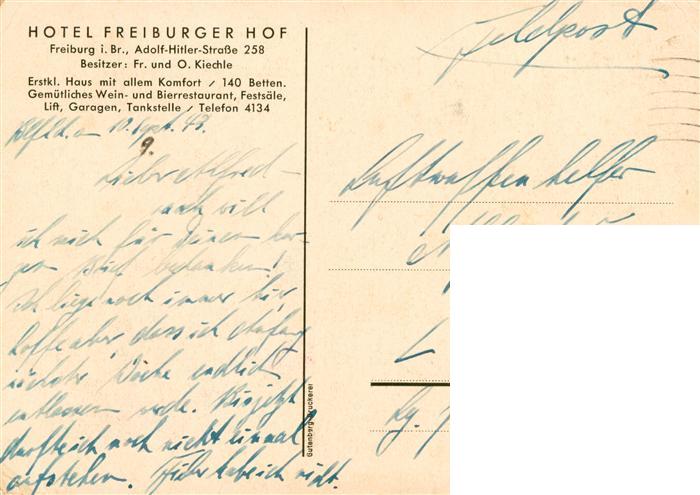 HOTEL FREIBURGER HOF
Freiburg i. Br., Adolf-Hitler-Straße 258
Besitzer: Fr. und O. Kiechle
Erstkl. Haus mit allem Komfort / 140 Betten.
Gemütliches Wein- und Bierrestaurant, Festsäle,
Lift, Garagen, Tankstelle / Telefon 4134
10. Sept. 43.
9.
Lieber Alfred –
will
ich mich für Deinen kur-
zen Brief bedanken!
Ich liege noch immer hier,
hoffe aber, dass ich Anfang
nächster Woche endlich
entlassen werde. Bis jetzt
durfte ich noch nicht einmal
aufstehen. Fieber habe ich nicht.
Gutenberg-Druckerei
Feldpost
Luftwaffenhelfer
L